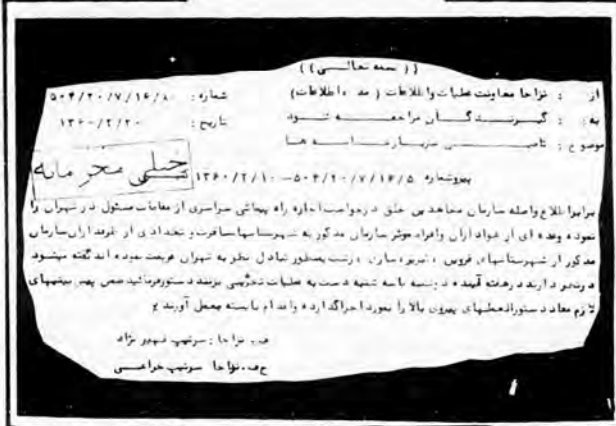 ((بسمه تعالـــی))
از : نزاجا معاونت عملیات واطلاعات ( مد ۰ اطلاعات) شماره : ۵۰۴/۲۰/۷/۱۶/۸۰
به : گیرنـــدگـــان مراجعـــه شـــود تاریخ : ۱۳۶۰/۲/۲۰
موضوع : تامیـــن سربازخانـــه هـــا
خیلی محرمانه
پیروشماره ۵۰۴/۲۰/۷/۱۶/۵ - ۱۳۶۰/۲/۱۰
برابراطلاع واصله سازمان مجاهدین خلق درخواست اجازه راه پیمائی سراسری از مقامات مسئول در تهران را
نموده وعده ای از هواداران وافراد موثر سازمان مذکور به شهرستانها مسافرت و تعدادی از طرفداران سازمان
مذکور از شهرستانهای قزوین ، تبریز، ساری ، رشت بمنظور تبادل نظر به تهران عزیمت نموده اند گفته میشود
درنظر دارند در هفته آینده دوشنبه یا سه شنبه دست به عملیات تخریبی بزنند دستورفرمائید ضمن پیش بینیهای
لازم مفاد دستورالعملهای پیروی بالا را بمورد اجراگذارده واقدام بایسته بعمل آورند
ف۰ نزاجا : سرتیپ ظهیر نژاد
ج ف۰ نزاجا سرتیپ